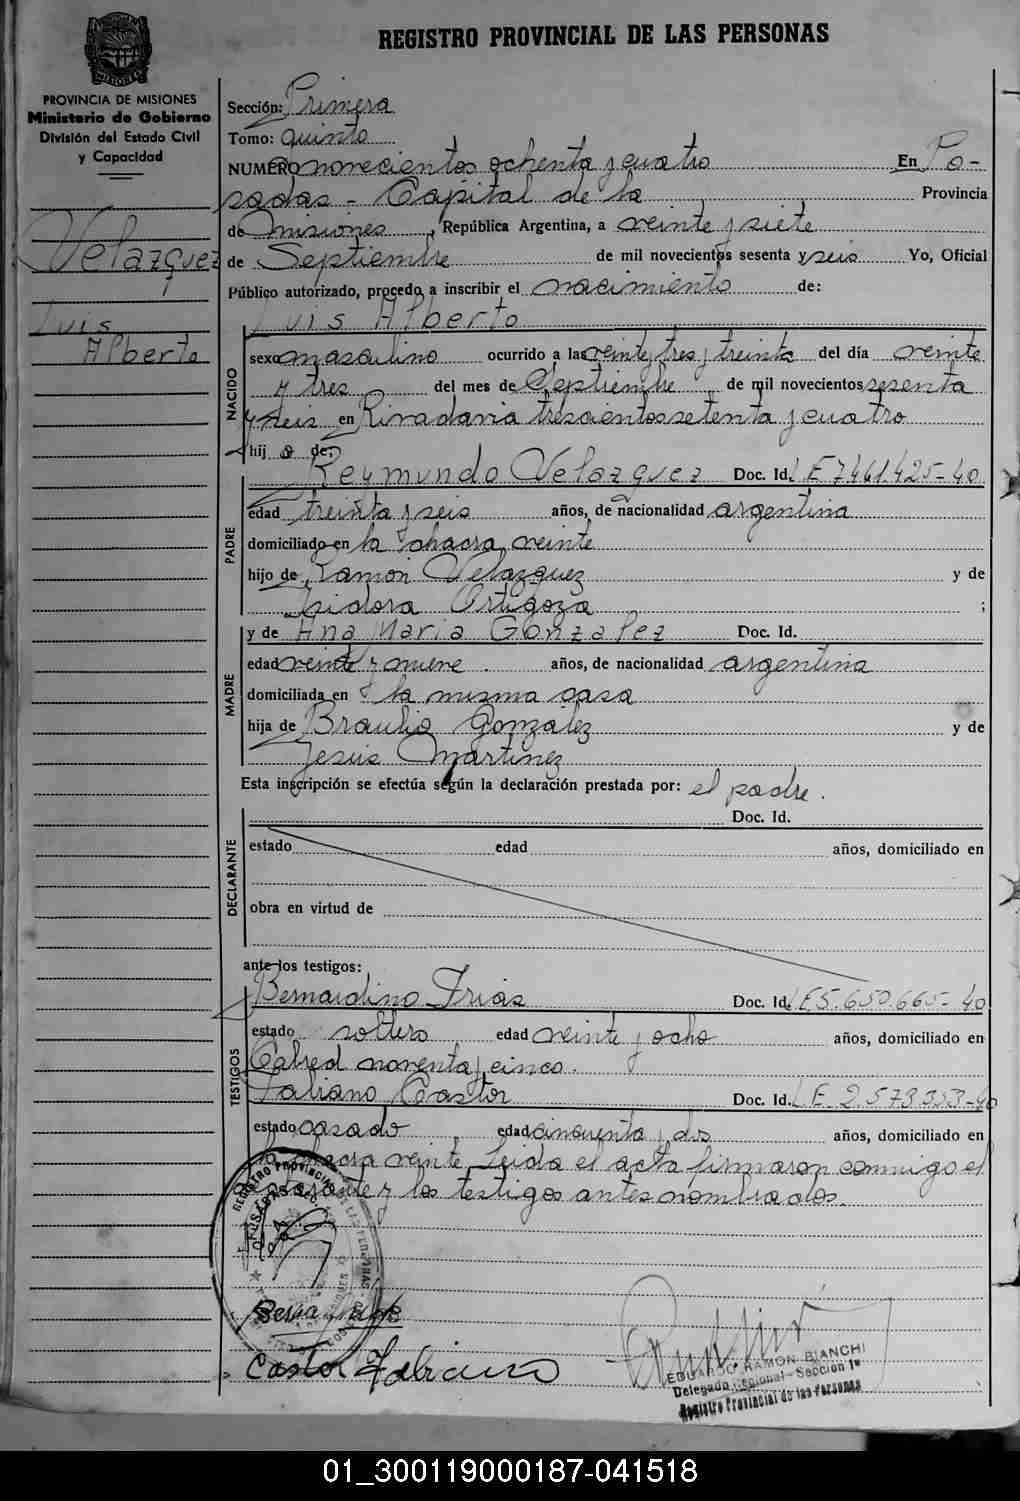 REGISTRO PROVINCIAL DE LAS PERSONAS
PROVINCIA DE MISIONES
Ministerio de Gobierno
División del Estado Civil
y Capacidad
Velazquez
Luis
Alberto
Sección: Primera
Tomo: quinto
NUMERO novecientos ochenta y cuatro En Po-
sadas - Capital de la Provincia
de Misiones, República Argentina, a veinte y siete
de Septiembre de mil novecientos sesenta y seis Yo, Oficial
Público autorizado, procedo a inscribir el nacimiento de:
Luis Alberto
NACIDO
sexo masculino ocurrido a las veinte y tres y treinta del día veinte
y tres del mes de Septiembre de mil novecientos sesenta
y seis en Rivadavia trescientos setenta y cuatro
hijo de:
Reymundo Velazquez Doc. Id. L E 7461.425-40
PADRE
edad treinta y seis años, de nacionalidad argentina
domiciliado en la chacra veinte
hijo de Ramón Velazquez y de
Isidora Ortigoza ;
y de Ana Maria Gonzalez Doc. Id.
MADRE
edad veinte y nueve años, de nacionalidad argentina
domiciliada en la misma casa
hija de Braulio González y de
Jesús Martinez
Esta inscripción se efectúa según la declaración prestada por: el padre.
Doc. Id.
DECLARANTE
estado edad años, domiciliado en
obra en virtud de
ante los testigos:
Bernardino Frias Doc. Id. L E 5.650.665-40
TESTIGOS
estado soltero edad veinte y ocho años, domiciliado en
noventa y cinco.
Castor Doc. Id. L E 2.573.353-40
estado casado edad cincuenta y dos años, domiciliado en
la chacra veinte. Leida el acta firmaron conmigo el
y los testigos antes nombrados.
REGISTRO PROVINCIAL DE LAS PERSONAS
POSADAS
Castor
EDUARDO RAMON BIANCHI
Delegado Regional - Sección 1ª
Registro Provincial de las Personas
01_300119000187-041518